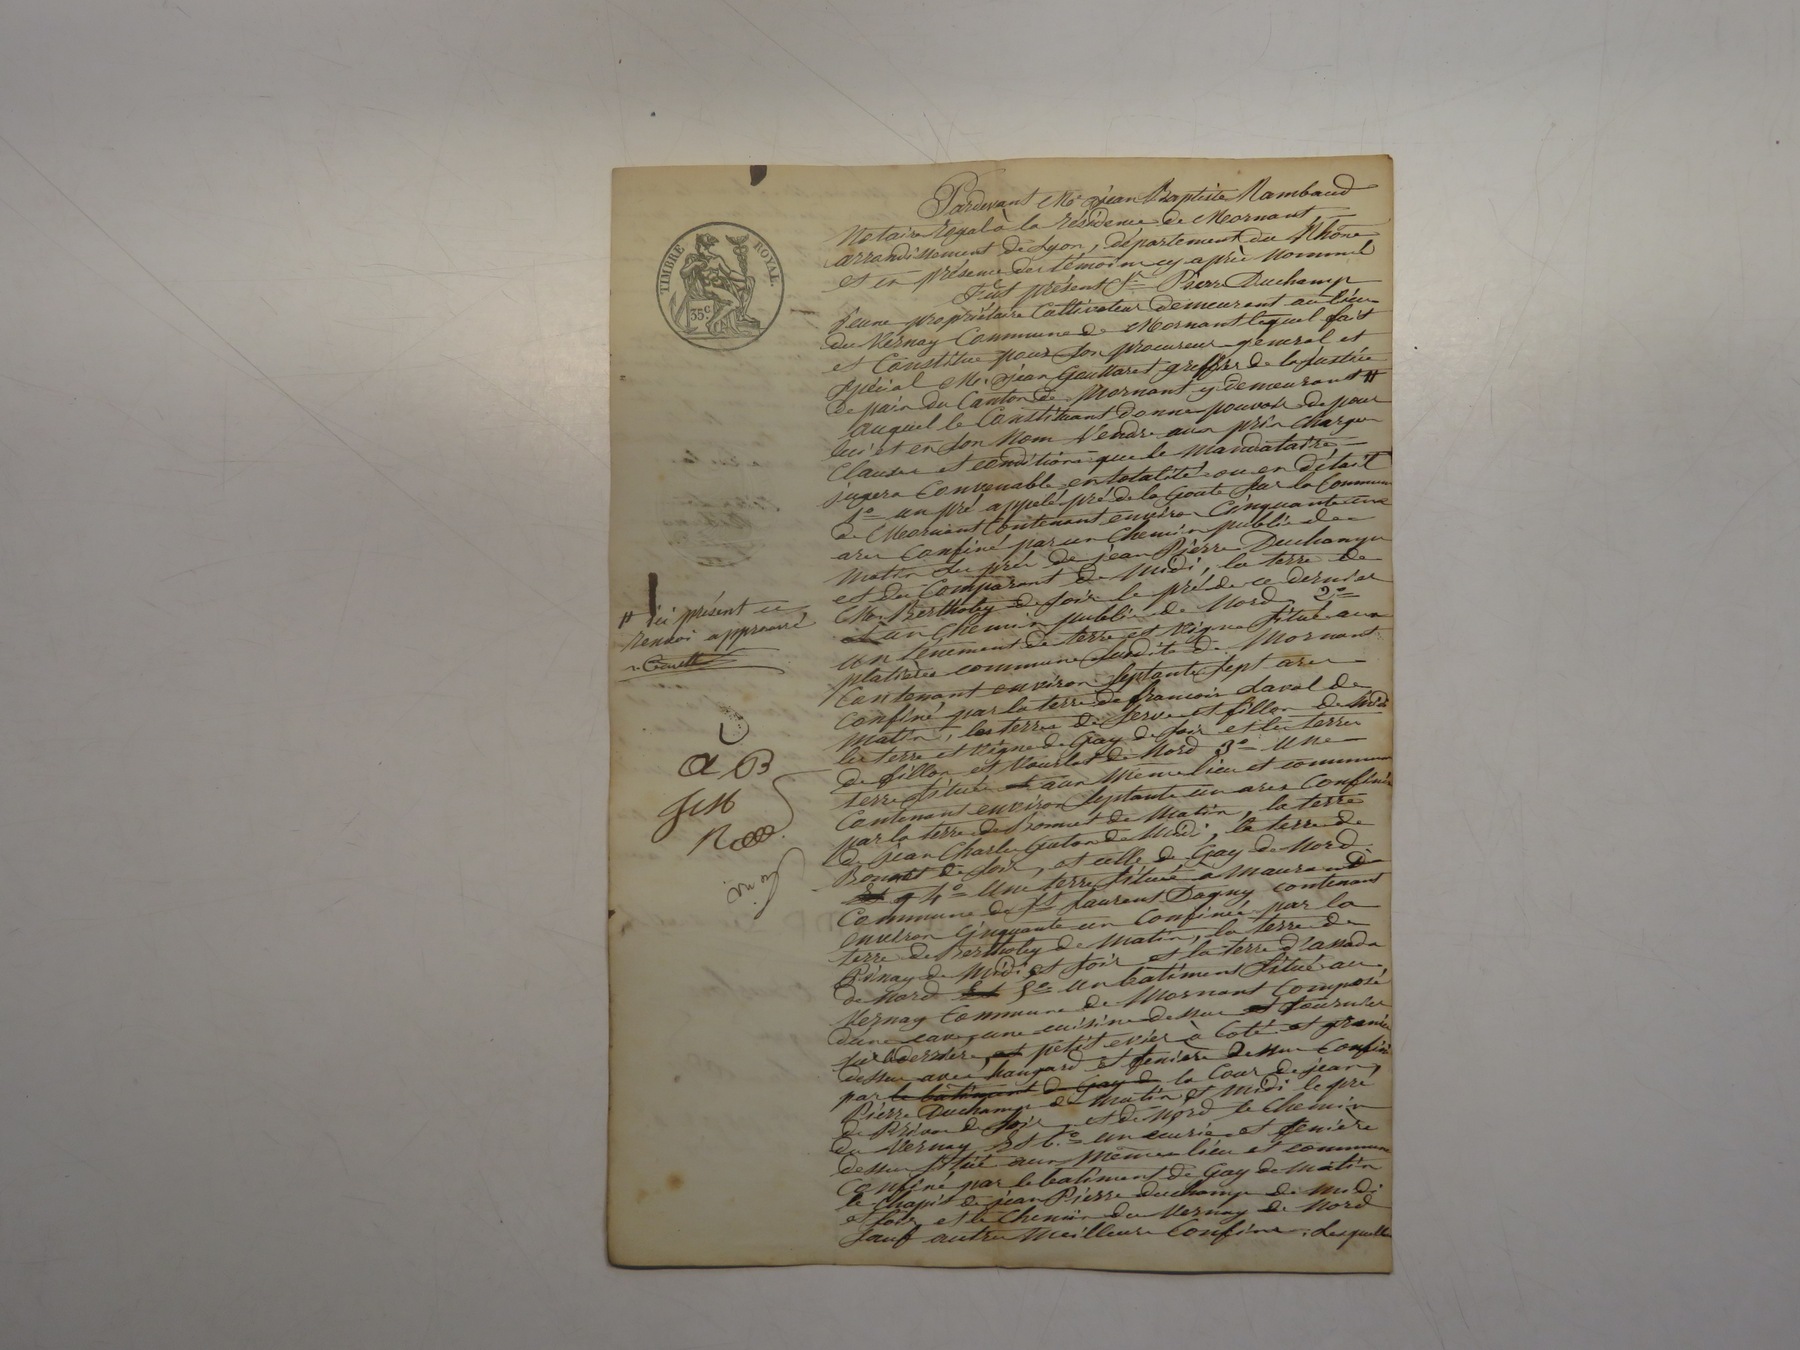 TIMBRE ROYAL.
35c
Pardevant Me jean Baptiste Rambaud
Notaire royal à la résidence de Mornant
arrondissement de Lyon, département du Rhône
et en présence des témoins cy après nommés
Fut présent Sr Pierre Duchamp
jeune propriétaire Cultivateur demeurant au lieu
du Vernay Commune de Mornant lequel fait
et Constitue pour son procureur general et
spécial Me jean Gouttaret greffier de la justice
de paix du Canton de Mornant y demeurant #
auquel le Constituant donne pouvoir de pour
lui et en son nom Vendre aux prix charges
Clauses et conditions que le Mandataire
jugera Convenable en totalité ou en détail
1o un pré appelé pré de la Goute sur la Commune
de Mornant Contenant environ Cinquante un
ares Confiné par un Chemin public de
Matin les prés de jean Pierre Duchamp
et du Comparant de Midi, la terre de
Mr Bertholey de soir le pré de ce dernier
et un Chemin public de Nord 2o
un tenement de terre et vigne situé aux
platières commune susdite de Mornant
Contenant environ septante sept ares
confiné par la terre de françois Laval de
Matin, les terres de Serve et fillon de Midi
les terre et vigne de Gay de soir et les terres
de fillon et Vourlat de Nord 3o une
terre située aux Mêmes lieu et commune
Contenant environ septante un ares Confinée
par la terre de Bonnet de Matin, la terre
de jean Charles Guton de Midi, la terre de
Bonnet de soir, et celle de Gay de Nord
4o Une terre située à Maurand
Commune de St Laurent Dagny contenant
environ Cinquante un Confinée par la
terre de Bertholey de Matin, la terre de
Pinay de Midi et soir et la terre
de Nord 5o un batiment situé au
Vernay Commune de Mornant Composé
d'une cave, une cuisine dessus
petit evier à Coté et grenier
dessus avec hangard et feniere dessus Confiné
par le batiment de Gay de la Cour de jean
Pierre Duchamp de Matin et Midi le pré
de soir et de Nord le Chemin
du Vernay et 6o un ecurie et feniere
dessus situé aux Mêmes lieu et commune
Confiné par le batiment de Gay de Matin
le Chapit de jean Pierre Duchamp de Midi
et soir et le Chemin du Vernay de Nord
sauf autres Meilleurs Confins. Lesquelles
# ici présent ce
renvoi approuvé
a B